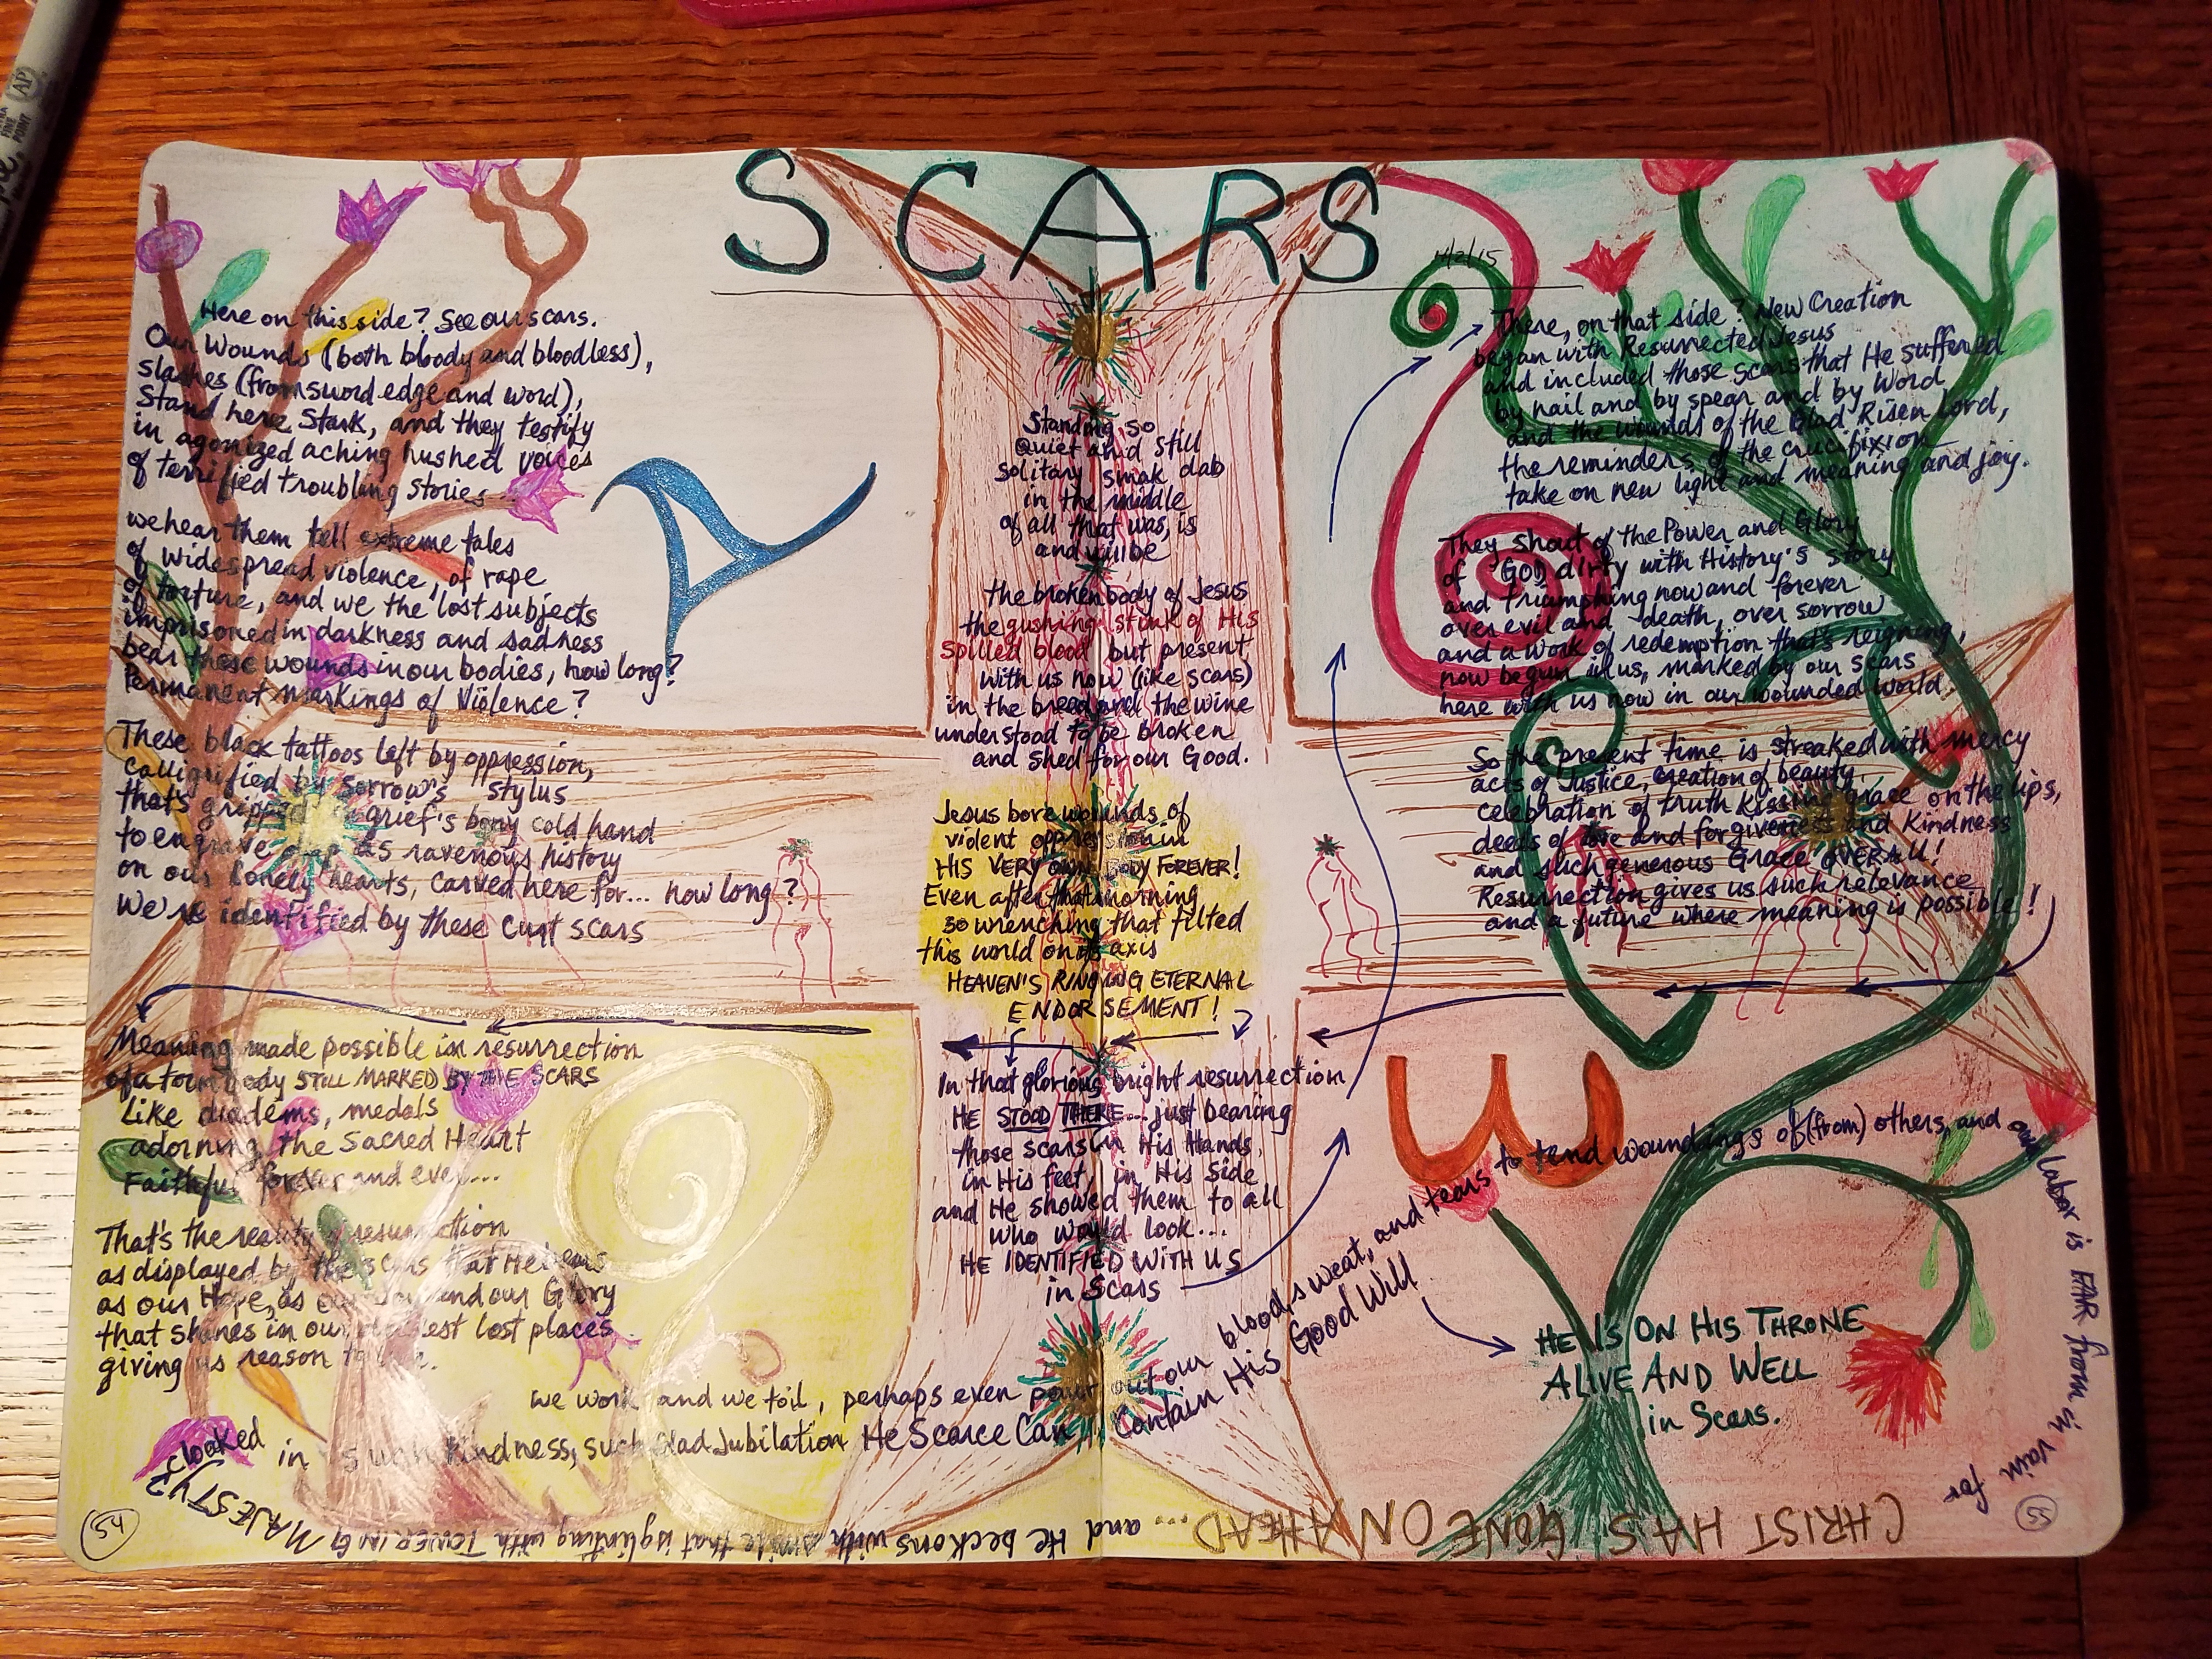 SCARS
4/2/15
Here on this side? See our scars.
Our Wounds (both bloody and bloodless),
slashes (from sword edge and word),
Stand here Stark, and they testify
in agonized aching hushed voices
of terrified troubling stories
we hear them tell extreme tales
of widespread violence, of rape
of torture, and we the lost subjects
imprisoned in darkness and sadness
bear these wounds in our bodies, how long?
Permanent markings of Violence?
These black tattoos left by oppression,
calligrified by Sorrow's stylus
that's gripped grief's bony cold hand
to engrave deep as ravenous history
on our lonely hearts, carved here for... how long?
We're identified by these curt scars
Meaning made possible in resurrection
of a torn body STILL MARKED BY THE SCARS
Like diadems, medals
adorning the Sacred Heart
Faithful forever and ever...
That's the reality of resurrection
as displayed by the scars that He bears
as our Hope, as our and our Glory
that shines in our darkest lost places
giving us reason to
Standing so
Quiet and still
solitary smak dab
in the middle
of all that was, is
and will be
the broken body of Jesus
the gushing stink of His
Spilled blood but present
with us now (like scars)
in the bread and the wine
understood to be broken
and Shed for our Good.
Jesus bore wounds of
violent oppression in
HIS VERY OWN BODY FOREVER!
Even after that morning
so wrenching that tilted
this world on its axis
HEAVEN'S RINGING ETERNAL
ENDORSEMENT!
In that glorious bright resurrection
HE STOOD THERE... just bearing
those scars in His Hands,
in His feet, in His side
and He showed them to all
who would look...
HE IDENTIFIED WITH US
in Scars
There, on that side? New Creation
began with Resurrected Jesus
and included those scars that He suffered
by nail and by spear and by Word,
and the wounds of the Glad Risen Lord,
the reminders of the crucifixion
take on new light and meaning and joy.
They shout of the Power and Glory
of God dirty with History's Story
and triumphing now and forever
over evil and death, over sorrow
and a work of redemption that's reigning,
now begun in us, marked by our scars
here with us now in our wounded world.
So the present time is streaked with mercy
acts of Justice, creation of beauty,
celebration of truth kissing grace on the lips,
deeds of love and forgiveness and kindness
and such generous Grace OVER ALL!
Resurrection gives us such relevance
and a future where meaning is possible!
HE IS ON HIS THRONE
ALIVE AND WELL
in Scars.
We work and we toil, perhaps even pour out our blood, sweat, and tears to tend woundings of (from) others, and our labor is FAR from in vain for
CHRIST HAS GONE ON AHEAD... and He beckons with a smile that is glinting with TOWERING MAJESTY
cloaked in such kindness, such Glad Jubilation He Scarce Can Contain His Good Will
54
55
AP
FINE
POINT